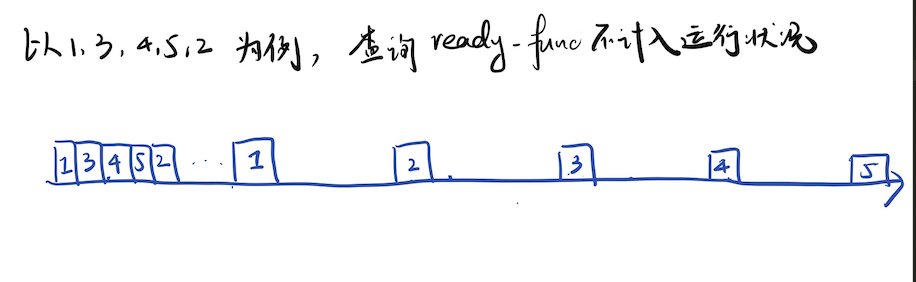 以1,3,4,5,2 为例，查询 ready-func 不计入运行状况
1 3 4 5 2 ... 1 2 3 4 5